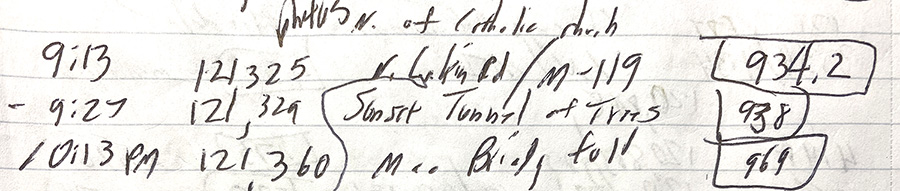 photos N. of Catholic church
9:13 121,325 N. Rd / M-119 934.2
- 9:27 121,329 Sunset Tunnel of Trees 938
10:13 PM 121,360 Mac Bridge toll 969